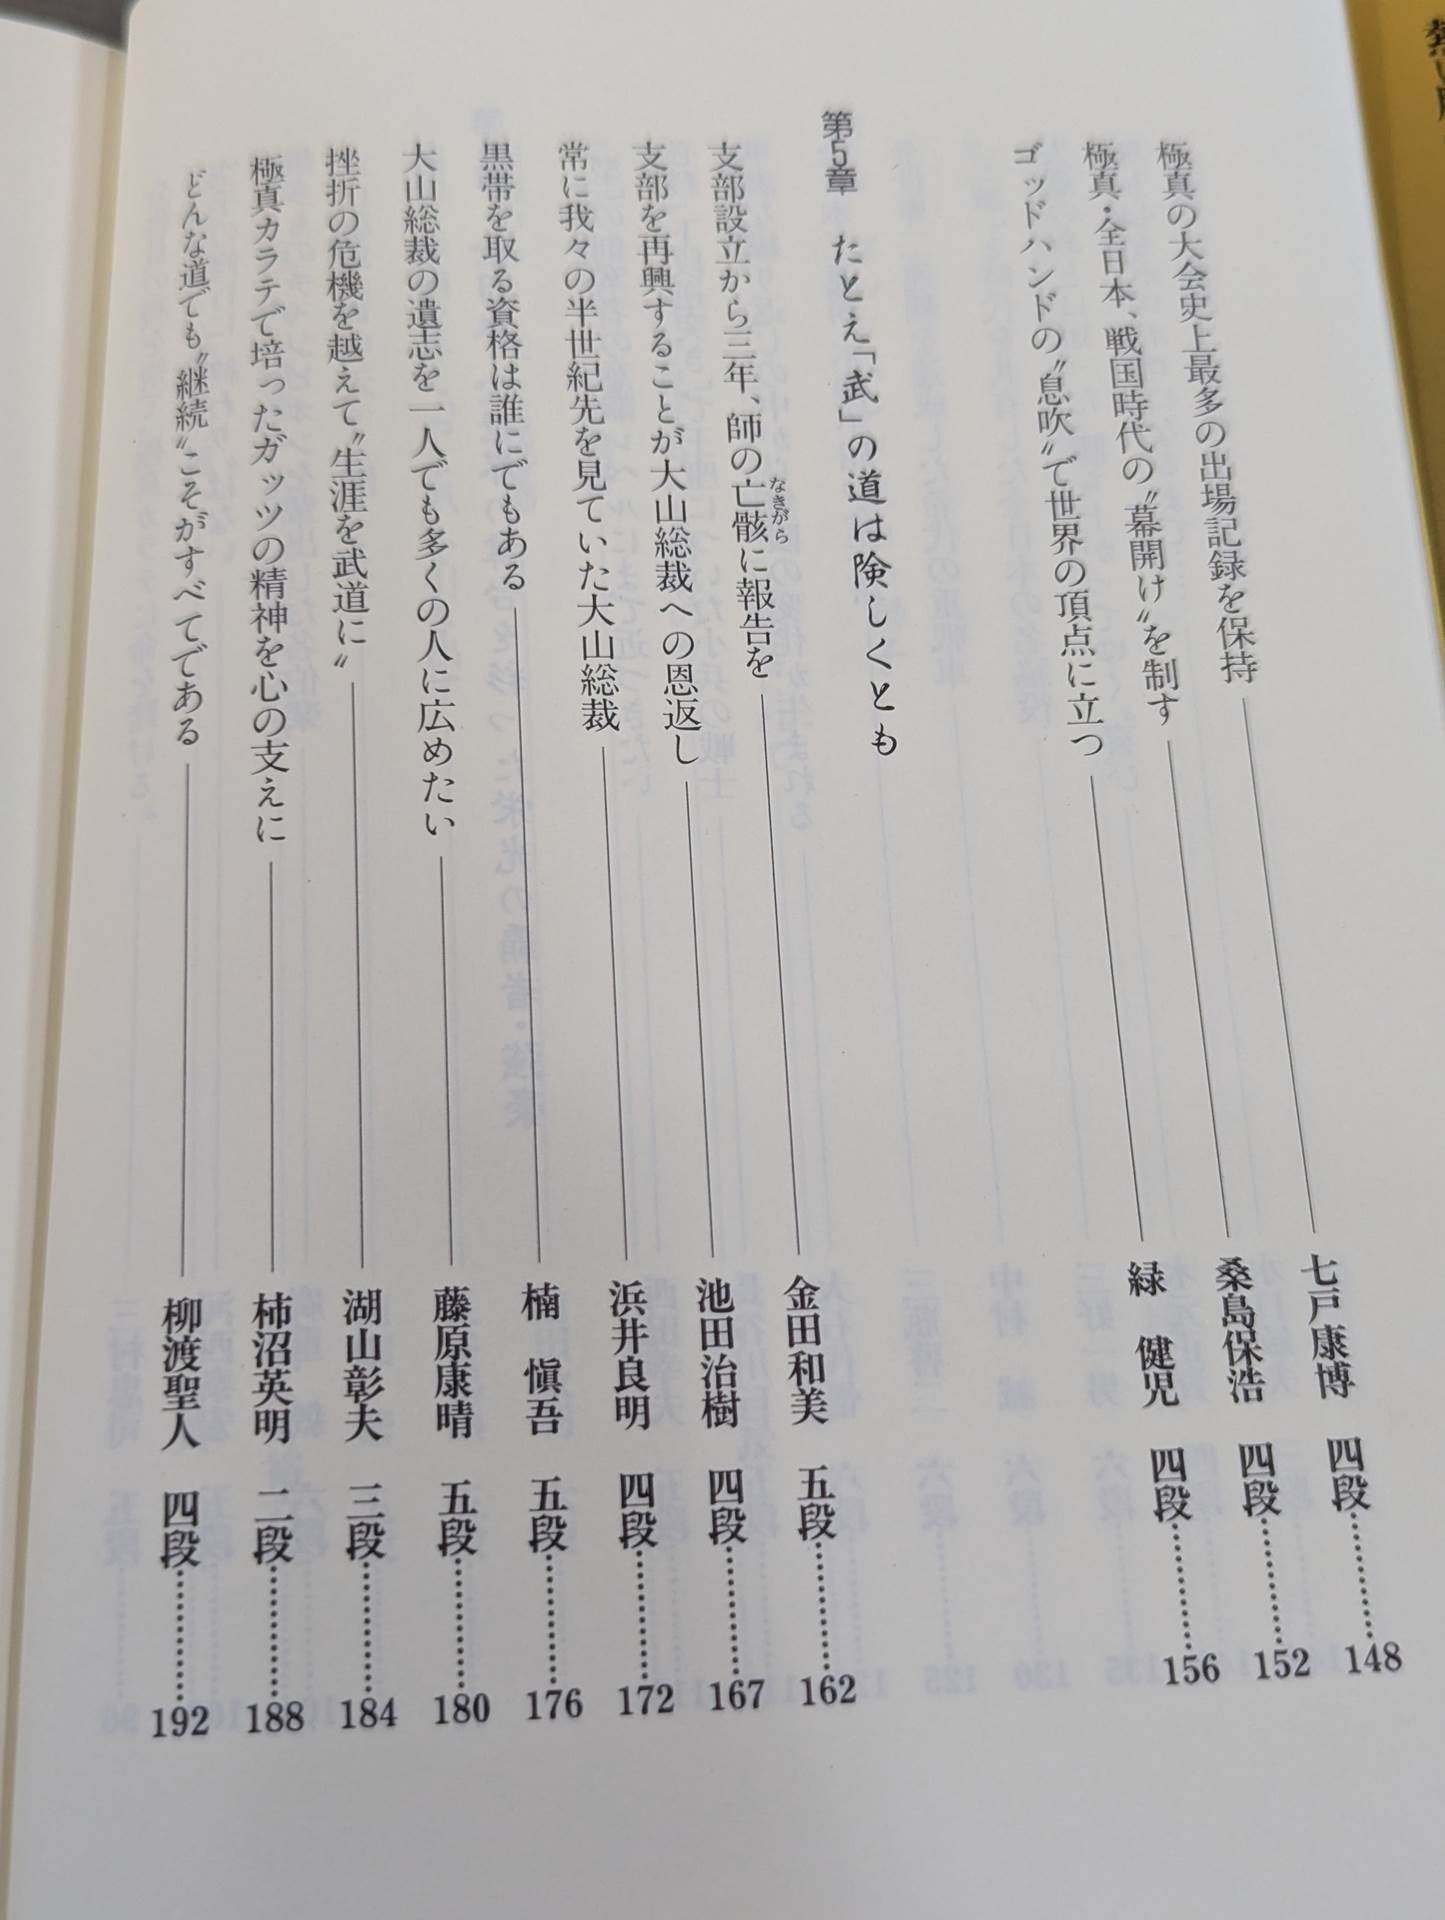 極真の大会史上最多の出場記録を保持 七戸康博 四段 148
極真・全日本、戦国時代の〝幕開け〟を制す 桑島保浩 四段 152
ゴッドハンドの〝息吹〟で世界の頂点に立つ 緑 健児 四段 156
第5章 たとえ「武」の道は険しくとも
支部設立から三年、師の亡骸に報告を 金田和美 五段 162
なきがら
支部を再興することが大山総裁への恩返し 池田治樹 四段 167
常に我々の半世紀先を見ていた大山総裁 浜井良明 四段 172
黒帯を取る資格は誰にでもある 楠 愼吾 五段 176
大山総裁の遺志を一人でも多くの人に広めたい 藤原康晴 五段 180
挫折の危機を越えて〝生涯を武道に〟 湖山彰夫 三段 184
極真カラテで培ったガッツの精神を心の支えに 柿沼英明 二段 188
どんな道でも〝継続〟こそがすべてである 柳渡聖人 四段 192